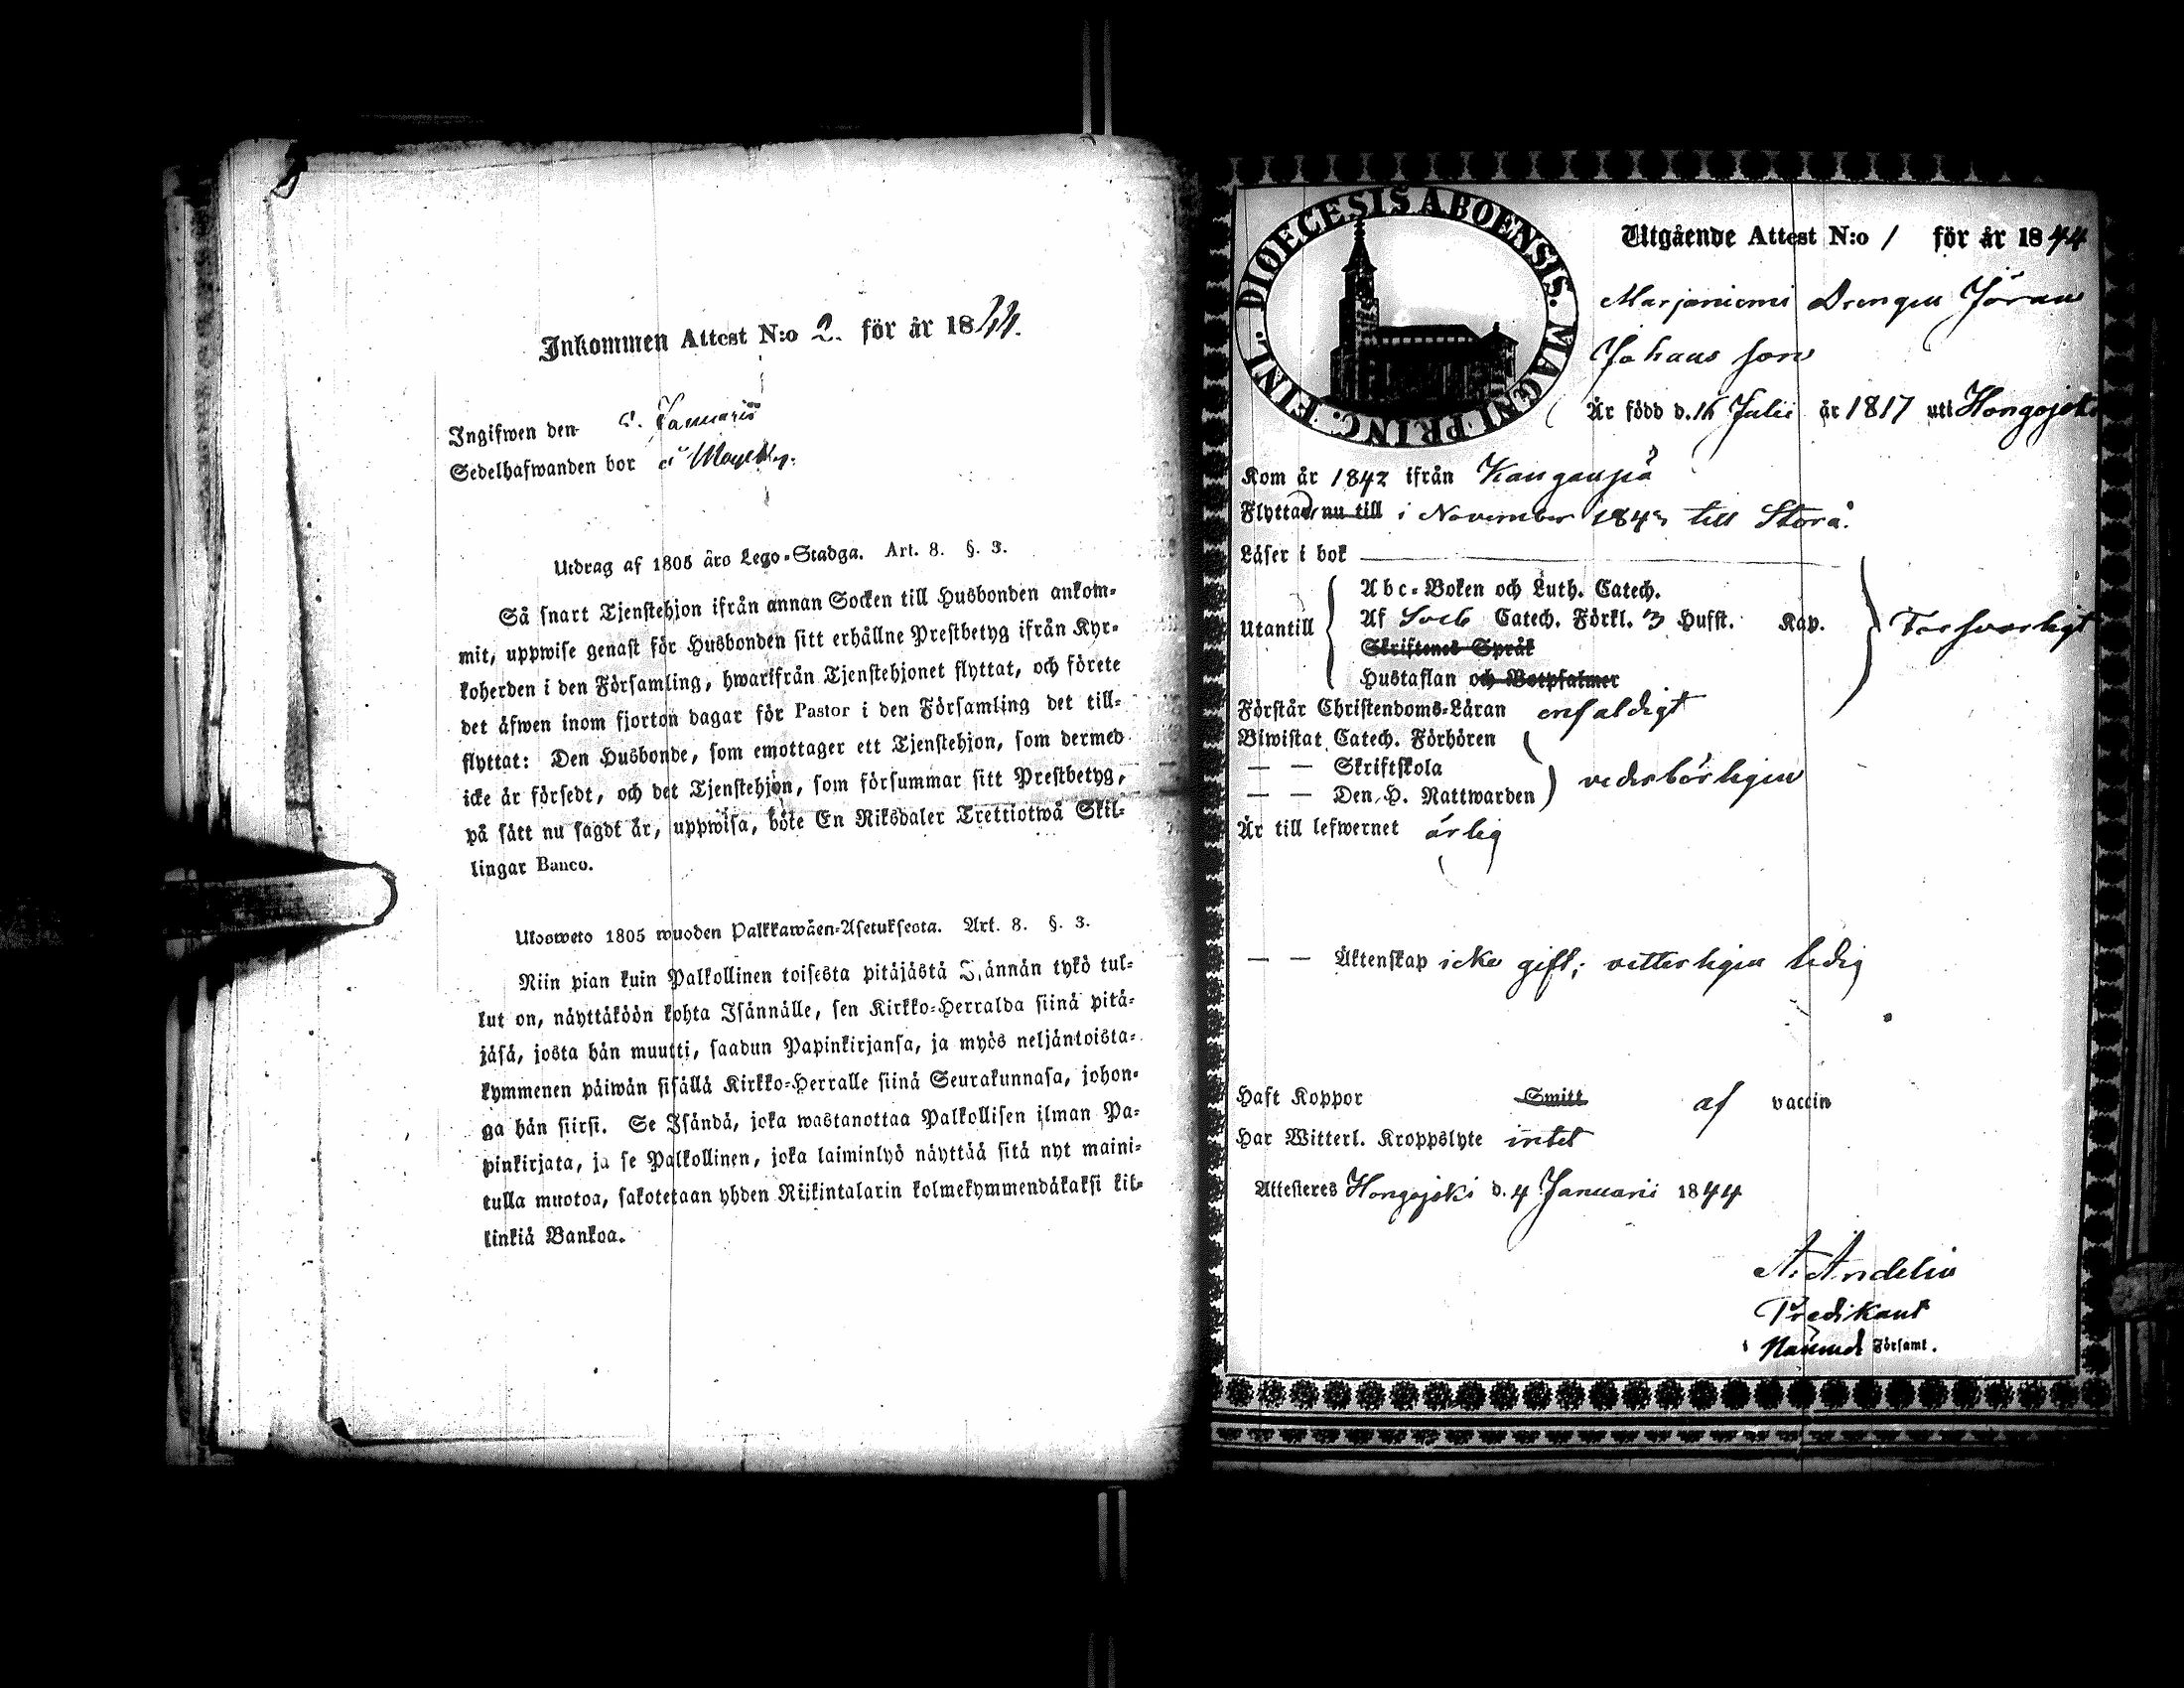 Inkommen Attest N:o 2. för år 1844.
Ingifwen den Januarii
Sedelhafwanden bor å
Utdrag af 1805 års Lego-Stadga. Art. 8. §. 3.
Så snart Tjenstehjon ifrån annan Socken till Husbonden ankom-
mit, uppwise genast för Husbonden sitt erhållne Prestbetyg ifrån Kyr-
koherden i den Församling, hwarifrån Tjenstehjonet flyttat, och förete
det äfwen inom fjorton dagar för Pastor i den Församling det till-
flyttat: Den Husbonde, som emottager ett Tjenstehjon, som dermed
icke är försedt, och det Tjenstehjon, som försummar sitt Prestbetyg,
på sätt nu sagdt är, uppwisa, böte En Riksdaler Trettiotwå Skil-
lingar Banco.
Ulosweto 1805 wuoden Palkkawäen-Asetuksesta. Art. 8. §. 3.
Niin pian kuin Palkollinen toisesta pitäjästä Isännän tykö tul-
lut on, näyttäköön kohta Isännälle, sen Kirkko-Herralda siinä pitä-
jäsä, josta hän muutti, saadun Papinkirjansa, ja myös neljäntoista-
kymmenen päiwän sisällä Kirkko-Herralle siinä Seurakunnasa, johon-
ga hän siirsi. Se Isändä, joka wastanottaa Palkollisen ilman Pa-
pinkirjata, ja se Palkollinen, joka laiminlyö näyttää sitä nyt maini-
tulla muotoa, sakotetaan yhden Riikintalarin kolmekymmendäkaksi kil-
linkiä Bankoa.
DIOECESIS ABOENSIS. MAGNI PRINC. FINL.
Utgående Attest N:o 1 för år 1844
Marjaniemi Drengen Jöran
Johans son
Är född d. 16 Julii år 1817 uti Hongojoki
Kom år 1842 ifrån Kangaupä
Flyttad nu till i November 1843 till Storå.
Läser i bok
Abc-Boken och Luth. Catech.
Utantill Af Sveb Catech. Förkl. 3 Hufst. Kap. Forsvarligt
Skriftenes Språk
Hustaflan och Botpsalmer
Förstår Christendoms-Läran enfaldigt
Biwistat Catech. Förhören
— — Skriftskola
vederbörligen
— — Den H. Nattwarden
Är till lefwernet ärlig
— — Äktenskap icke gift; vetterligen ledig
Haft Koppor Smitt af vaccin
Har Witterl. Kroppslyte intet
Attesteres Hongojoki d. 4 Januarii 1844
A. Andelin
Predikant
i Nämnd Förfaml.